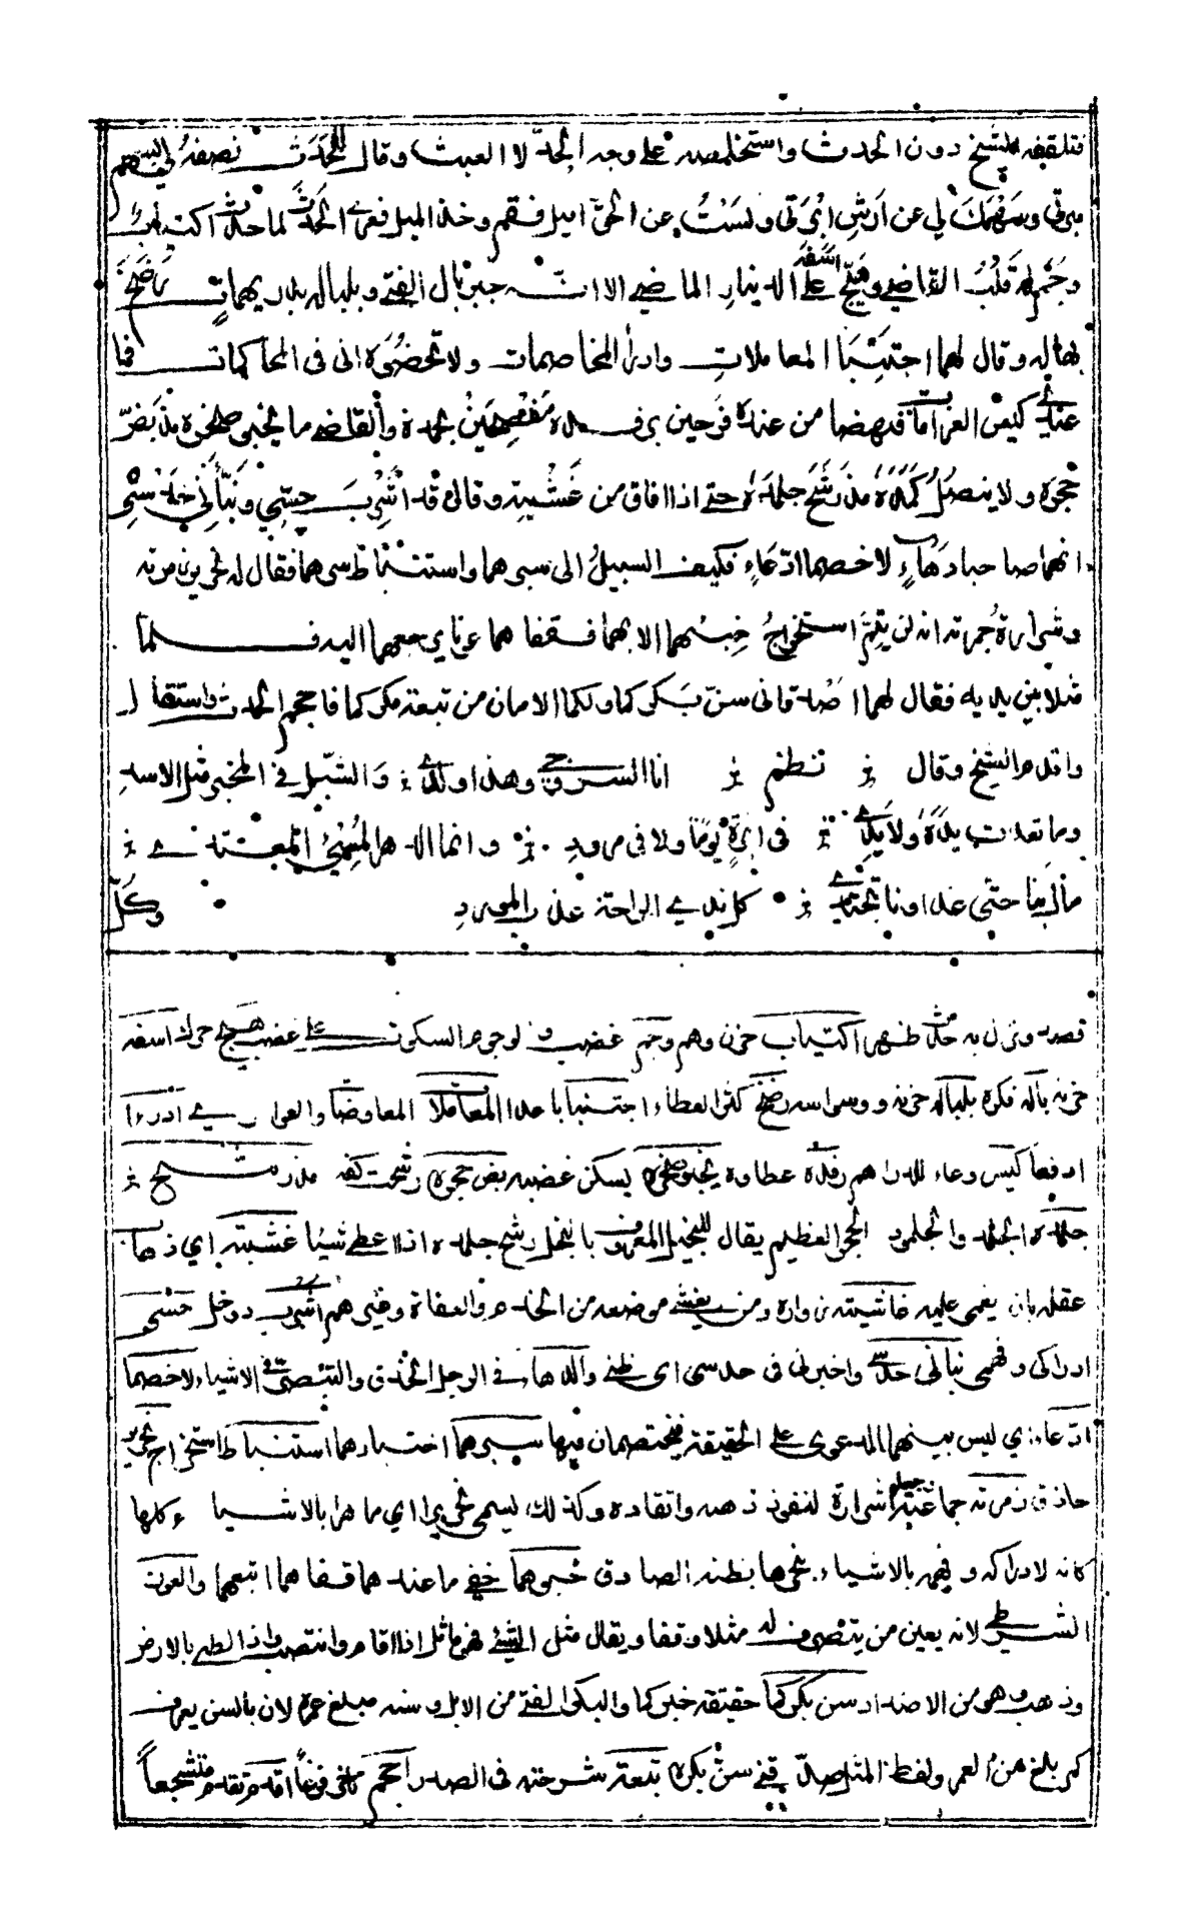 فتلقفه الشيخ دون الحدث واستخلصه على وجه الجد لا العبث وقال للحدث نصفه لي بسهم
مبرتي وسهمك لي عن ارش ابرتي ولست عن الحق اميل فقم وخذ الميل فعرى الحدث لما حدث اكتئاب
وجم له قلب القاضي وهيج اسفه على الدينار الماضي الا انه جبر بال الفتى وبلباله بدريهمات رضخ
بها له وقال لهما اجتنبا المعاملات وادرا المخاصمات ولا تحضراني في المحاكمات فما
عندي كيس الغرامات فنهضا من عنده فرحين برفده مفصحين بحمده والقاضي ما يخبو ضجره مذ بض
حجره ولا ينصل كمده مذ رشح جلمده حتى اذا افاق من غشيته وقال قد اشرب حسي ونبأني حدسي
انهما صاحبا دهاء لا خصما ادعاء فكيف السبيل الى سبرهما واستنباط سرهما فقال له نحرير زمرته
وشرارة جمرته انه لن يتم استخراج خبئهما الا بهما فقفاهما عونا يرجعهما اليه فلما
مثلا بين يديه فقال لهما اصدقاني سن بكركما ولكما الامان من تبعة مكركما فاحجم الحدث واستقال
واقدم الشيخ وقال نظم انا السروجي وهذا ولدي والشبل في المخبر مثل الاسد
وما تعدت يده ولا يدي في ابرة يوما ولا في مرود وانما الدهر المسيء المعتدي
مال بنا حتى غدونا نجتدي كل ندي الراحة عذب المورد وكل
قصد ونزل به حدث ظهر اكتياب حزن وهم وجم غضب لوجوم السكوت على غضب هيج حرك اسفه
حزنه باله فكره بلباله حزنه ووسواسه رضخ كثر العطاء اجتنبا باعدا المعاملات المعاوضات والعواري ادرءا
ادفعا كيس وعاء للدراهم رفده عطاوه يخبو ضجره يسكن غضبه بض حجره رشحت كفه مذ رشح
جلمده الجلمد والجلمود الحجر العظيم يقال للبخيل المعروف بالبخل رشح جلمده اذا اعطى شيئا غشيته اي ذهاب
عقله بان يغمى عليه غاشيته زواره ومن يغشى موضعه من الخدم والعفاة وغيرهم اشرب دوخل حسي
ادراكي وفهمي نباني حدسي واخبرني في حدسي اي ظني والدهاء في الرجل الحذق والتبصر في الاشياء لا خصما
ادعاء اي ليس بينهما الدعوى على الحقيقة فيختصمان فيها سبرهما اختبارهما استنباط استخراج نحرير
حاذق زمرته جماعته شرارة لنفوذ ذهنه واتقاده وكذلك يسمى نحريرا اي ماهرا بالاشياء كلها
كانه لادراكه وفهمه بالاشياء ينحرها بظنه الصادق خبرهما خفي ما عندهما قفاهما اتبعهما والعون
الشرطي لانه يعين من يتصرف له مثلا وقفا ويقال مثل الشيء فهو ماثل اذا اقام وانتصب واذا لطى بالارض
وذهب وهو من الاضداد سن بكركما حقيقة خبركما والبكر الفتى من الابل وسنه مبلغ عمره لان بالسن يعرف
كم بلغ من العمر ولفظ المثل صدقني سن بكره تبعة شرحته في الصدر احجم تاخر فزعا اقدم تقدم متشجعا